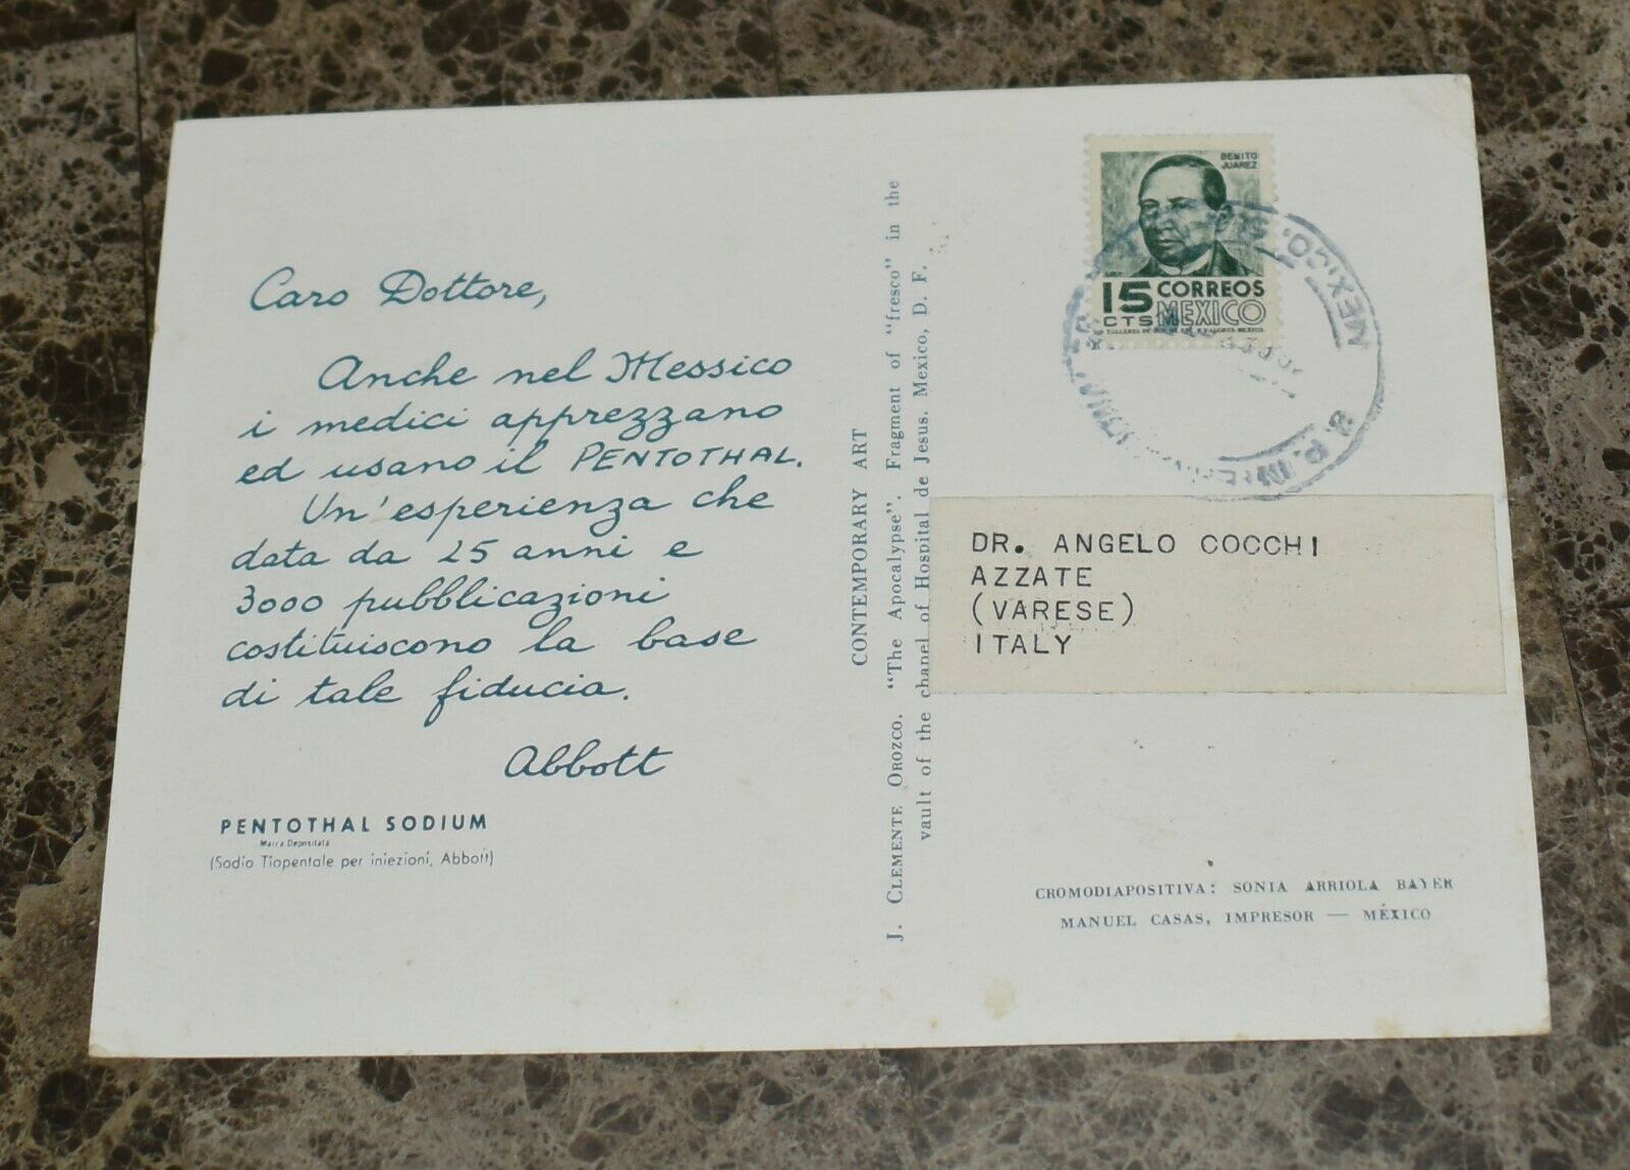 Caro Dottore,
Anche nel Messico
i medici apprezzano
ed usano il PENTOTHAL.
Un'esperienza che
data da 25 anni e
3000 pubblicazioni
costituiscono la base
di tale fiducia.
Abbott
PENTOTHAL SODIUM
Marca Depositata
(Sodio Tiopentale per iniezioni, Abbott)
CONTEMPORARY ART
J. CLEMENTE OROZCO. "The Apocalypse". Fragment of "fresco" in the
vault of the chapel of Hospital de Jesus. Mexico, D. F.
BENITO
JUAREZ
15 CORREOS
CTS MEXICO
MEXICO,
DR. ANGELO COCCHI
AZZATE
(VARESE)
ITALY
CROMODIAPOSITIVA: SONIA ARRIOLA BAYER
MANUEL CASAS, IMPRESOR — MÉXICO